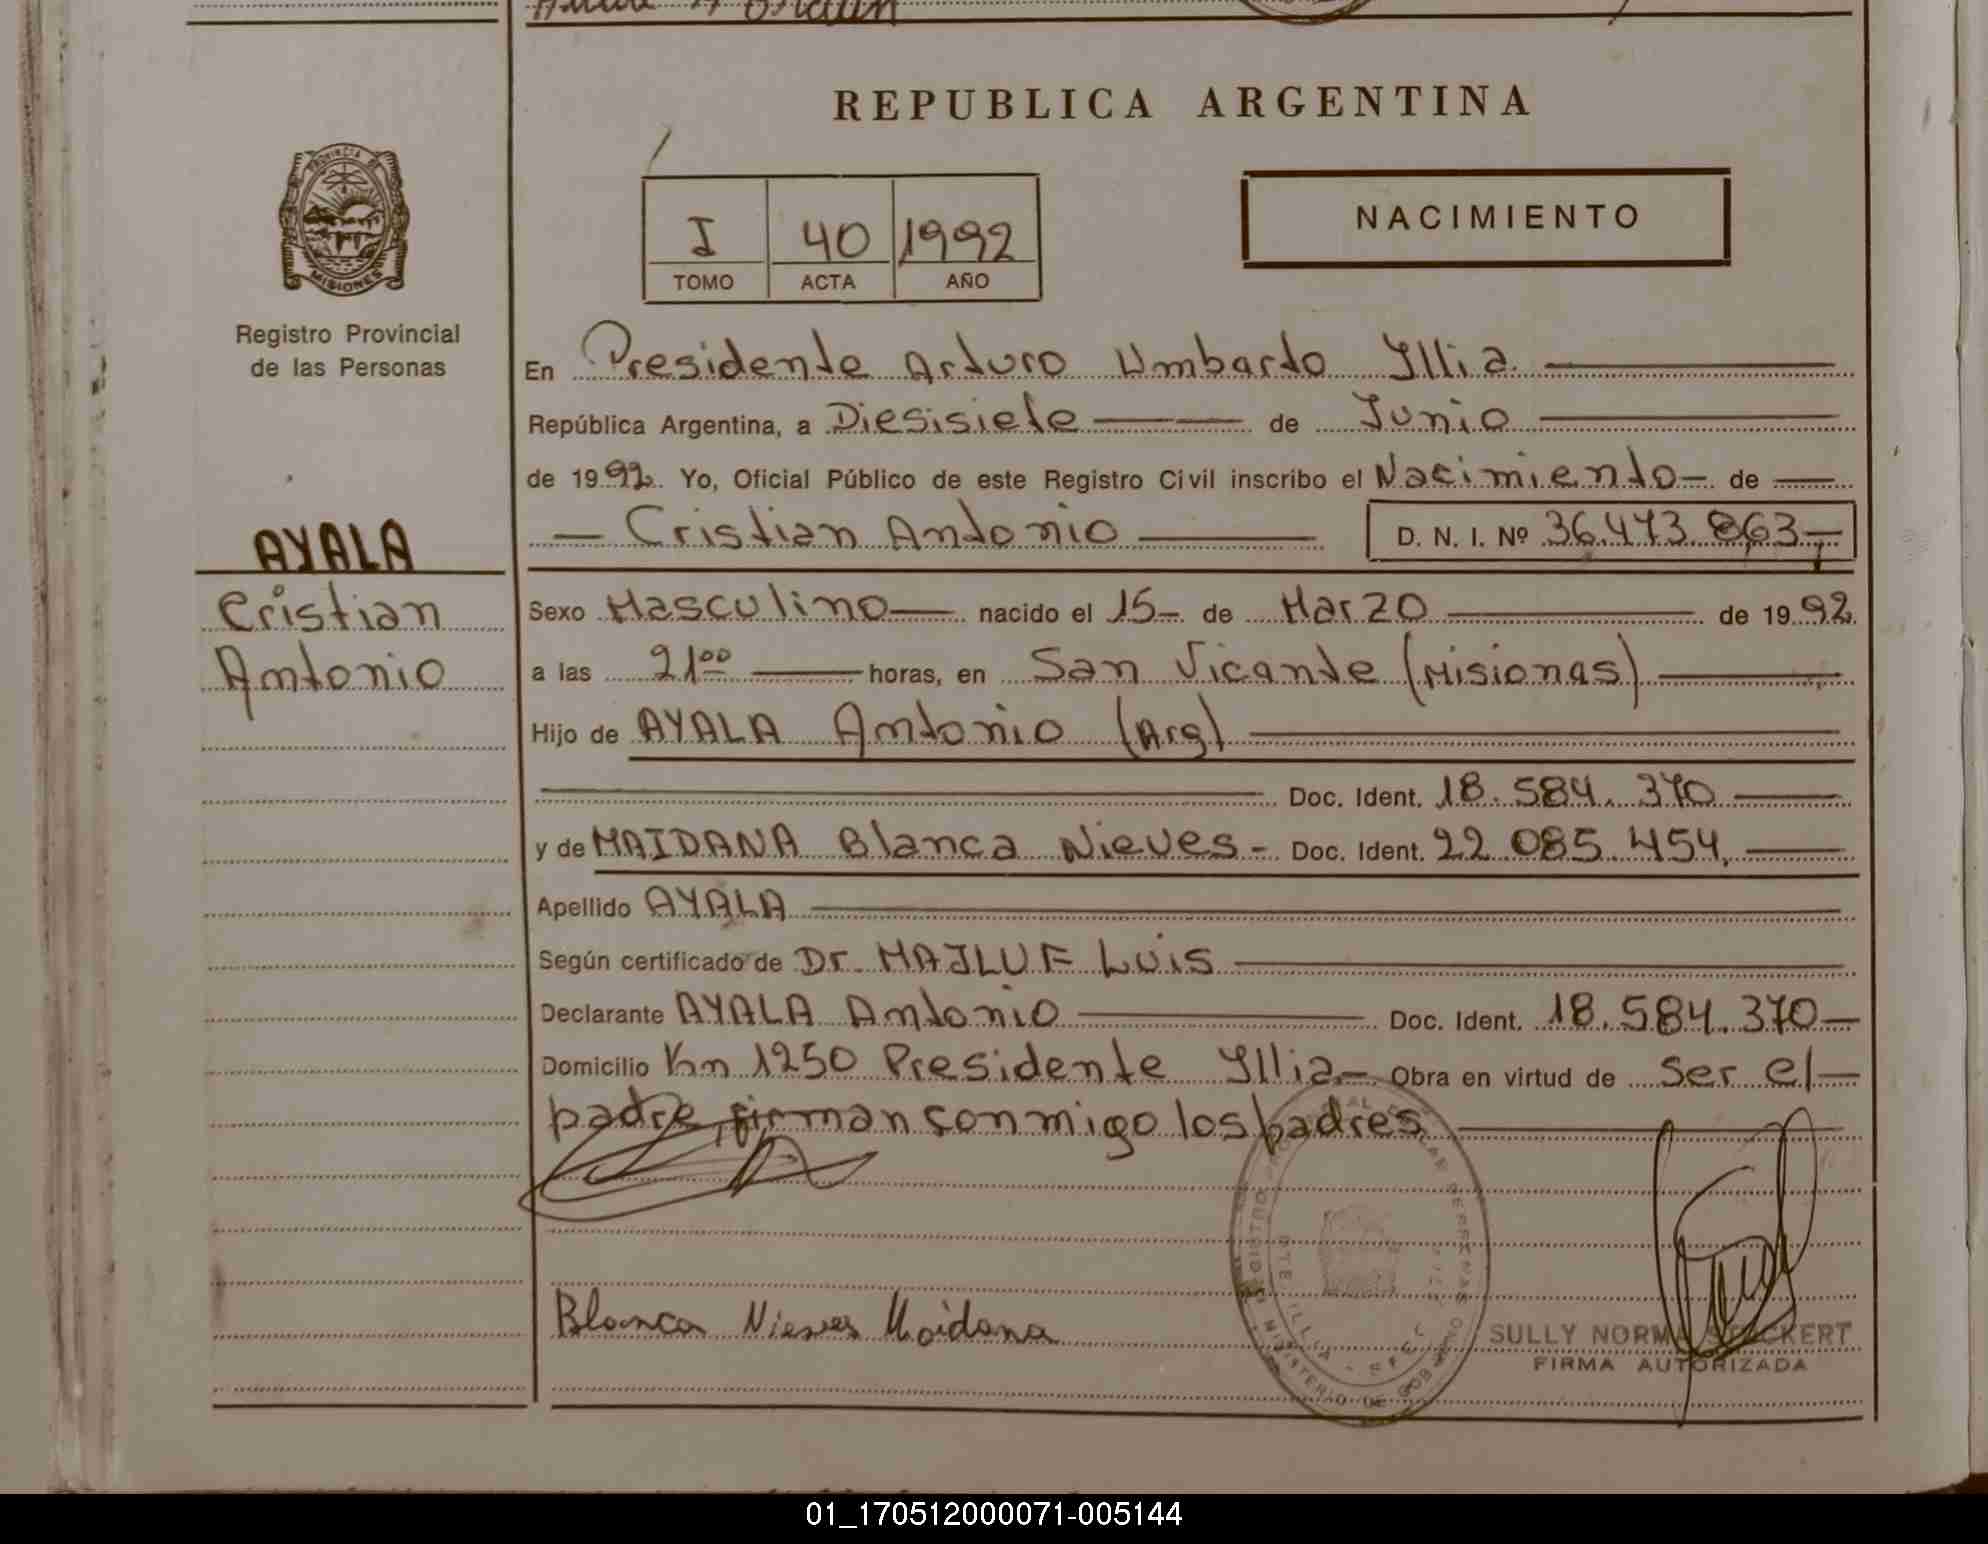 REPUBLICA ARGENTINA
PROVINCIA DE
MISIONES
Registro Provincial
de las Personas
AYALA
Cristian
Antonio
I 40 1992
TOMO ACTA AÑO
NACIMIENTO
En Presidente Arturo Umbarto Illia
República Argentina, a Diesisiete de Junio
de 1992. Yo, Oficial Público de este Registro Civil inscribo el Nacimiento de
Cristian Antonio D. N. I. Nº 36.473.863
Sexo Masculino nacido el 15 de Marzo de 1992
a las 21⁰⁰ horas, en San Vicante (Misionas)
Hijo de AYALA Antonio (Arg)
Doc. Ident. 18.584.370
y de MAIDANA Blanca Nieves - Doc. Ident. 22.085.454
Apellido AYALA
Según certificado de Dr. MAJLUF Luis
Declarante AYALA Antonio Doc. Ident. 18.584.370
Domicilio Km 1250 Presidente Illia Obra en virtud de ser el
padre, firman conmigo los padres
Blanca Nieves Maidana
MINISTERIO DE GOBIERNO
SULLY NORMA
FIRMA AUTORIZADA
01_170512000071-005144